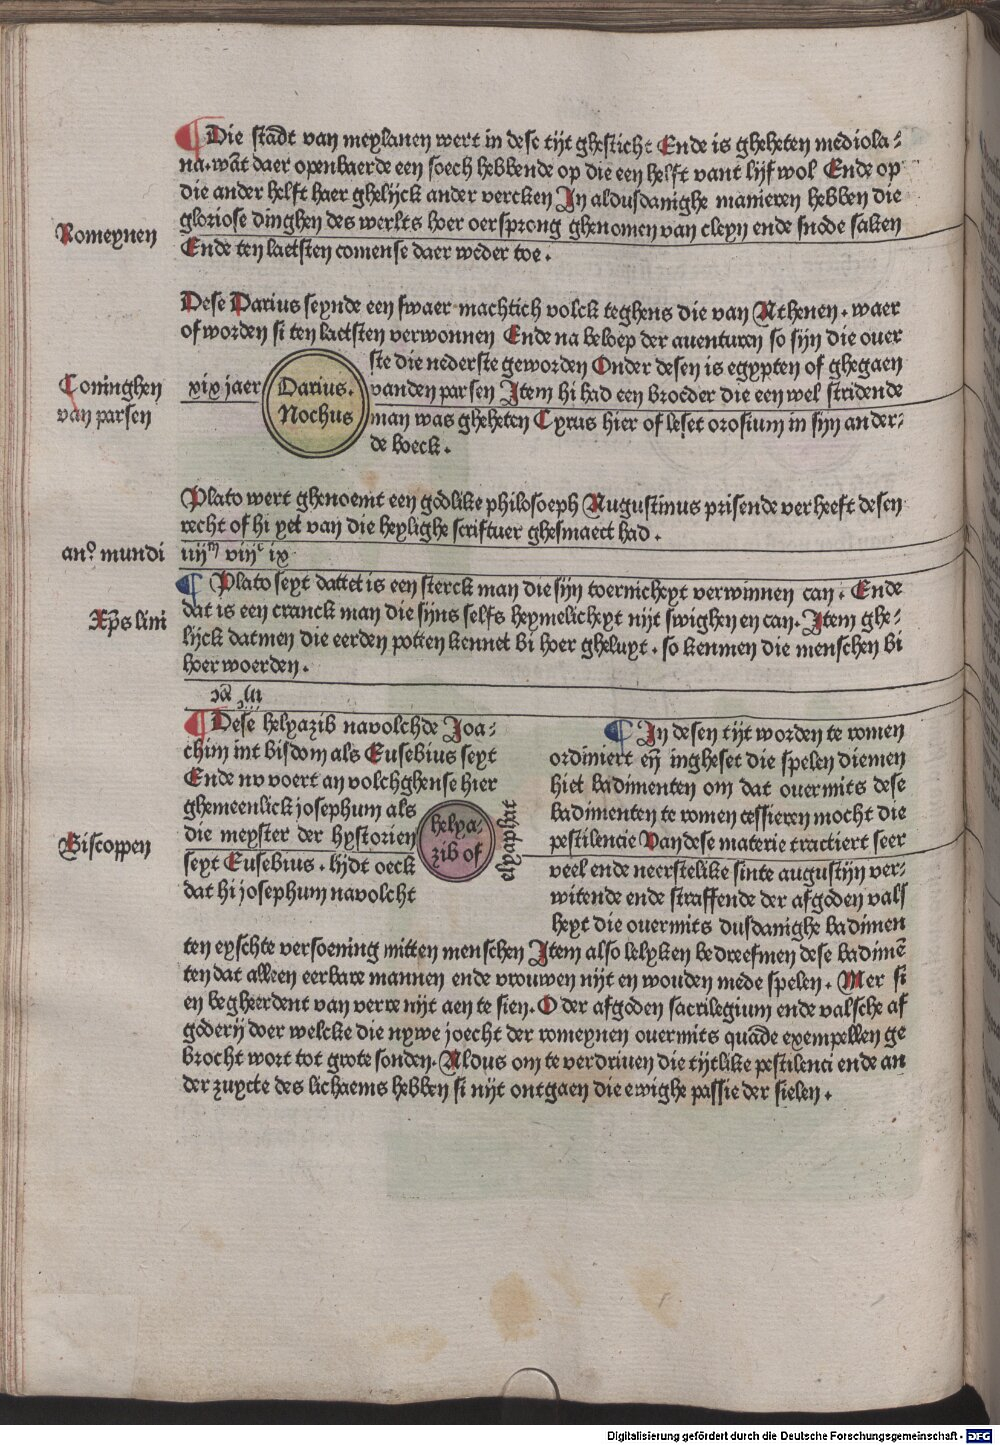 ¶ Die stadt van meylanen wert in dese tijt ghesticht Ende is gheheten mediola-
na. wāt daer openbaerde een soech hebbende op die een helft vant lijf wol Ende op
die ander helft haer ghelijck ander vercken In aldusdanighe manieren hebben die
gloriose dinghen des werlts hoer oersprong ghenomen van cleyn ende snode saken
Romeynen
Ende ten laetsten comense daer weder toe.
Dese Darius seynde een swaer machtich volck teghens die van Athenen. waer
of worden si ten laetsten verwonnen Ende na beloep der auenturen so sijn die ouer
ste die nederste geworden Onder desen is egypten of ghegaen
Coninghen
van parsen
xix jaer
Darius.
Nochus
vanden parsen Item hi had een broeder die een wel stridende
man was gheheten Cyrus hier of leset orosium in sijn ander-
de boeck.
Plato wert ghenoemt een godlike philosoeph Augustinus prisende verheeft desen
recht of hi yet van die heylighe scriftuer ghesmaect had.
anº mundi
iiijᵐ viijᶜ ix
¶ Plato seyt dattet is een sterck man die sijn toernicheyt verwinnen can. Ende
dat is een cranck man die sijns selfs heymelicheyt nijt swighen en can. Item ghe-
Xp̄s lini
lijck datmen die eerden potten kennet bi hoer gheluyt. so kenmen die menschen bi
hoer woerden.
¶ Dese helyazib navolchde Joa-
chim int bisdom als Eusebius seyt
Ende nv voert an volchghense hier
ghemeenlick josephum als
die meyster der hystorien
Biscoppen
seyt Eusebius. hijdt oeck
dat hi josephum navolcht
helya-
zib of
elyaphat
¶ In desen tijt worden te romen
ordiniert eñ ingheset die spelen diemen
hiet badimenten om dat ouermits dese
badimenten te romen cessieren mocht die
pestilencie Van dese materie tractiert seer
veel ende neerstelike sinte augustijn ver-
witende ende straffende der afgoden vals
heyt die ouermits dusdanighe badimen
ten eyschte versoening mitten menschen Item also lelyken bedreefmen dese badimē
ten dat alleen eerbare mannen ende vrouwen nijt en wouden mede spelen. Mer si
en begheerdent van verre nijt aen te sien. O der afgoden sacrilegium ende valsche af
goderij doer welcke die nywe joecht der romeynen ouermits quāde exempellen ge
brocht wort tot grote sonden. Aldus om te verdriuen die tijtlike pestilenci ende an
der zuycte des lichaems hebben si nijt ontgaen die ewighe passie der sielen.
Digitalisierung gefördert durch die Deutsche Forschungsgemeinschaft - DFG